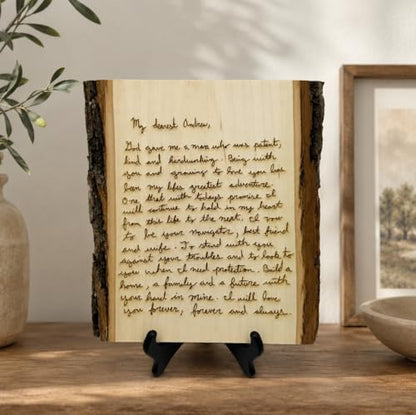 My dearest Andrew,
God gave me a man who was patent,
kind and hardworking. Being with
you and growing to love you has
been my lifes greatest adventure.
One that with todays promise I
will continue to hold in my heart
from this life to the next. I vow
to be your navigator, best friend
and wife. To stand with you
against your troubles and to look to
you when I need protection. Build a
home, a family and a future with
your hand in mine. I will love
you forever, forever and always.